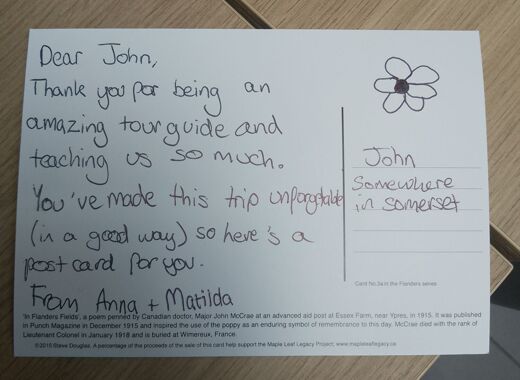 Dear John,
Thank you for being an
amazing tour guide and
teaching us so much.
You've made this trip unforgetable
(in a good way) so here's a
post card for you.
From Anna + Matilda
John
Somewhere
in somerset
Card No.3a in the Flanders series
'In Flanders Fields', a poem penned by Canadian doctor, Major John McCrae at an advanced aid post at Essex Farm, near Ypres, in 1915. It was published
in Punch Magazine in December 1915 and inspired the use of the poppy as an enduring symbol of remembrance to this day. McCrae died with the rank of
Lieutenant Colonel in January 1918 and is buried at Wimereux, France.
©2015 Steve Douglas. A percentage of the proceeds of the sale of this card help support the Maple Leaf Legacy Project; www.mapleleaflegacy.ca